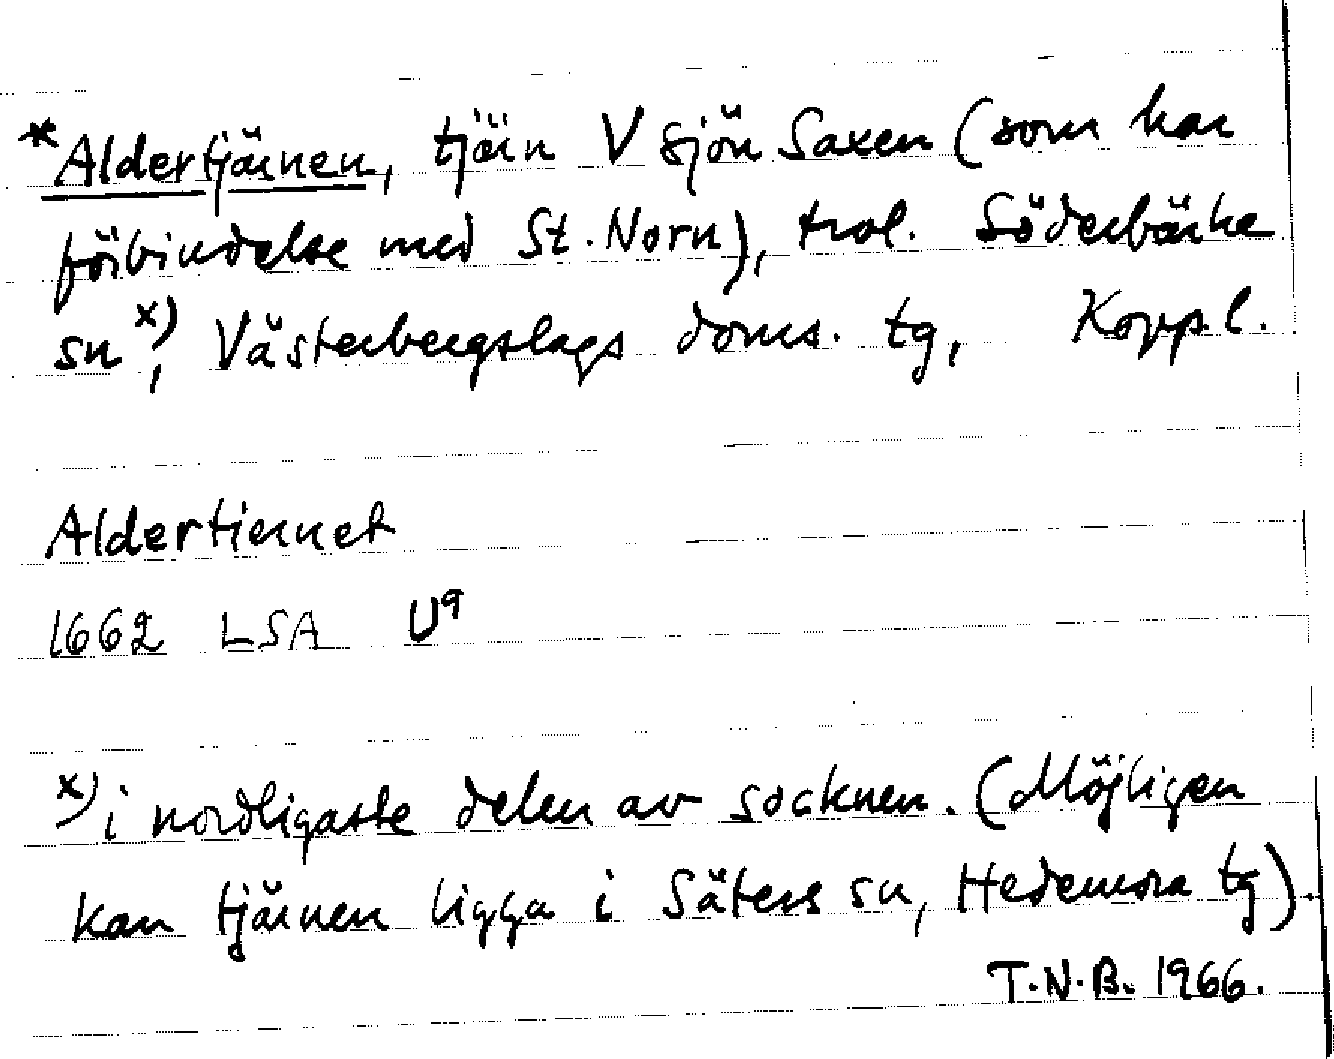 *Aldertjärnen, tjärn V sjön Saxen (som har
förbindelse med St. Norn), trol. Söderbärke
sn x), Västerbergslags doms. tg, Koppl.
Aldertiernet
1662 LSA U9
x) i nordligaste delen av socknen. (Möjligen
kan tjärnen ligga i Säters sn, Hedemora tg).
T.N.B. 1966.